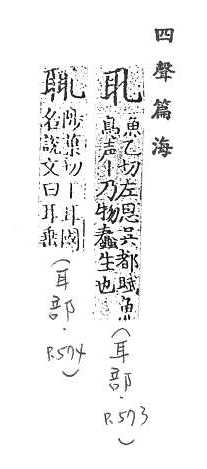 四聲篇海
耴
魚乙切左思吳都賦魚
鳥声丨乃物蠢生也
(耳部．P.573)
陟葉切丨耳國
名說文曰耳垂
(耳部．P.574)